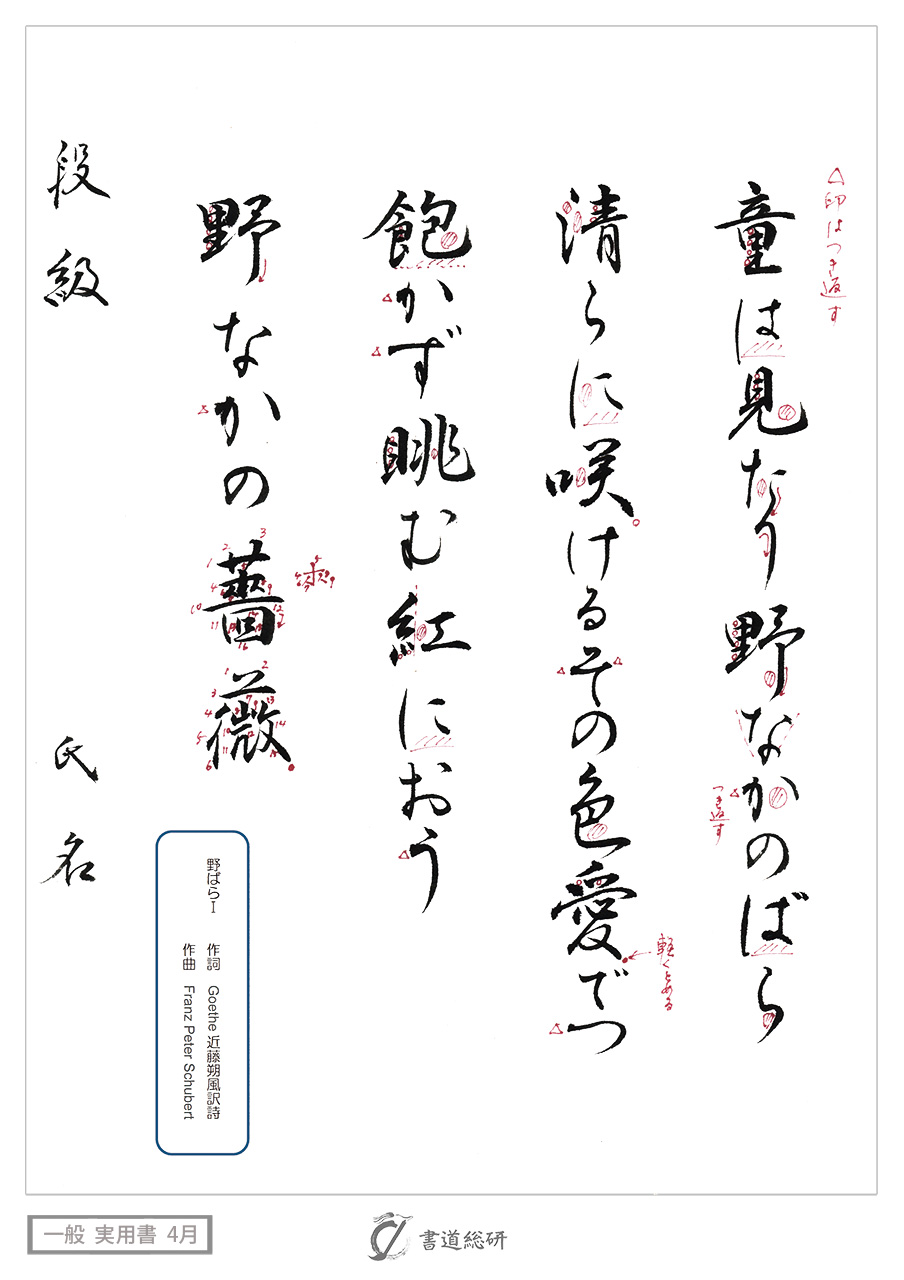 △印はつき返す
童は見たり野なかのばら
つき返す
清らに咲けるその色愛でつ
軽くとめる
飽かず眺む紅におう
野なかの薔薇
段級 氏名
野ばらⅠ 作詞 Goethe 近藤朔風訳詩
作曲 Franz Peter Schubert
一般 実用書 4月
書道総研